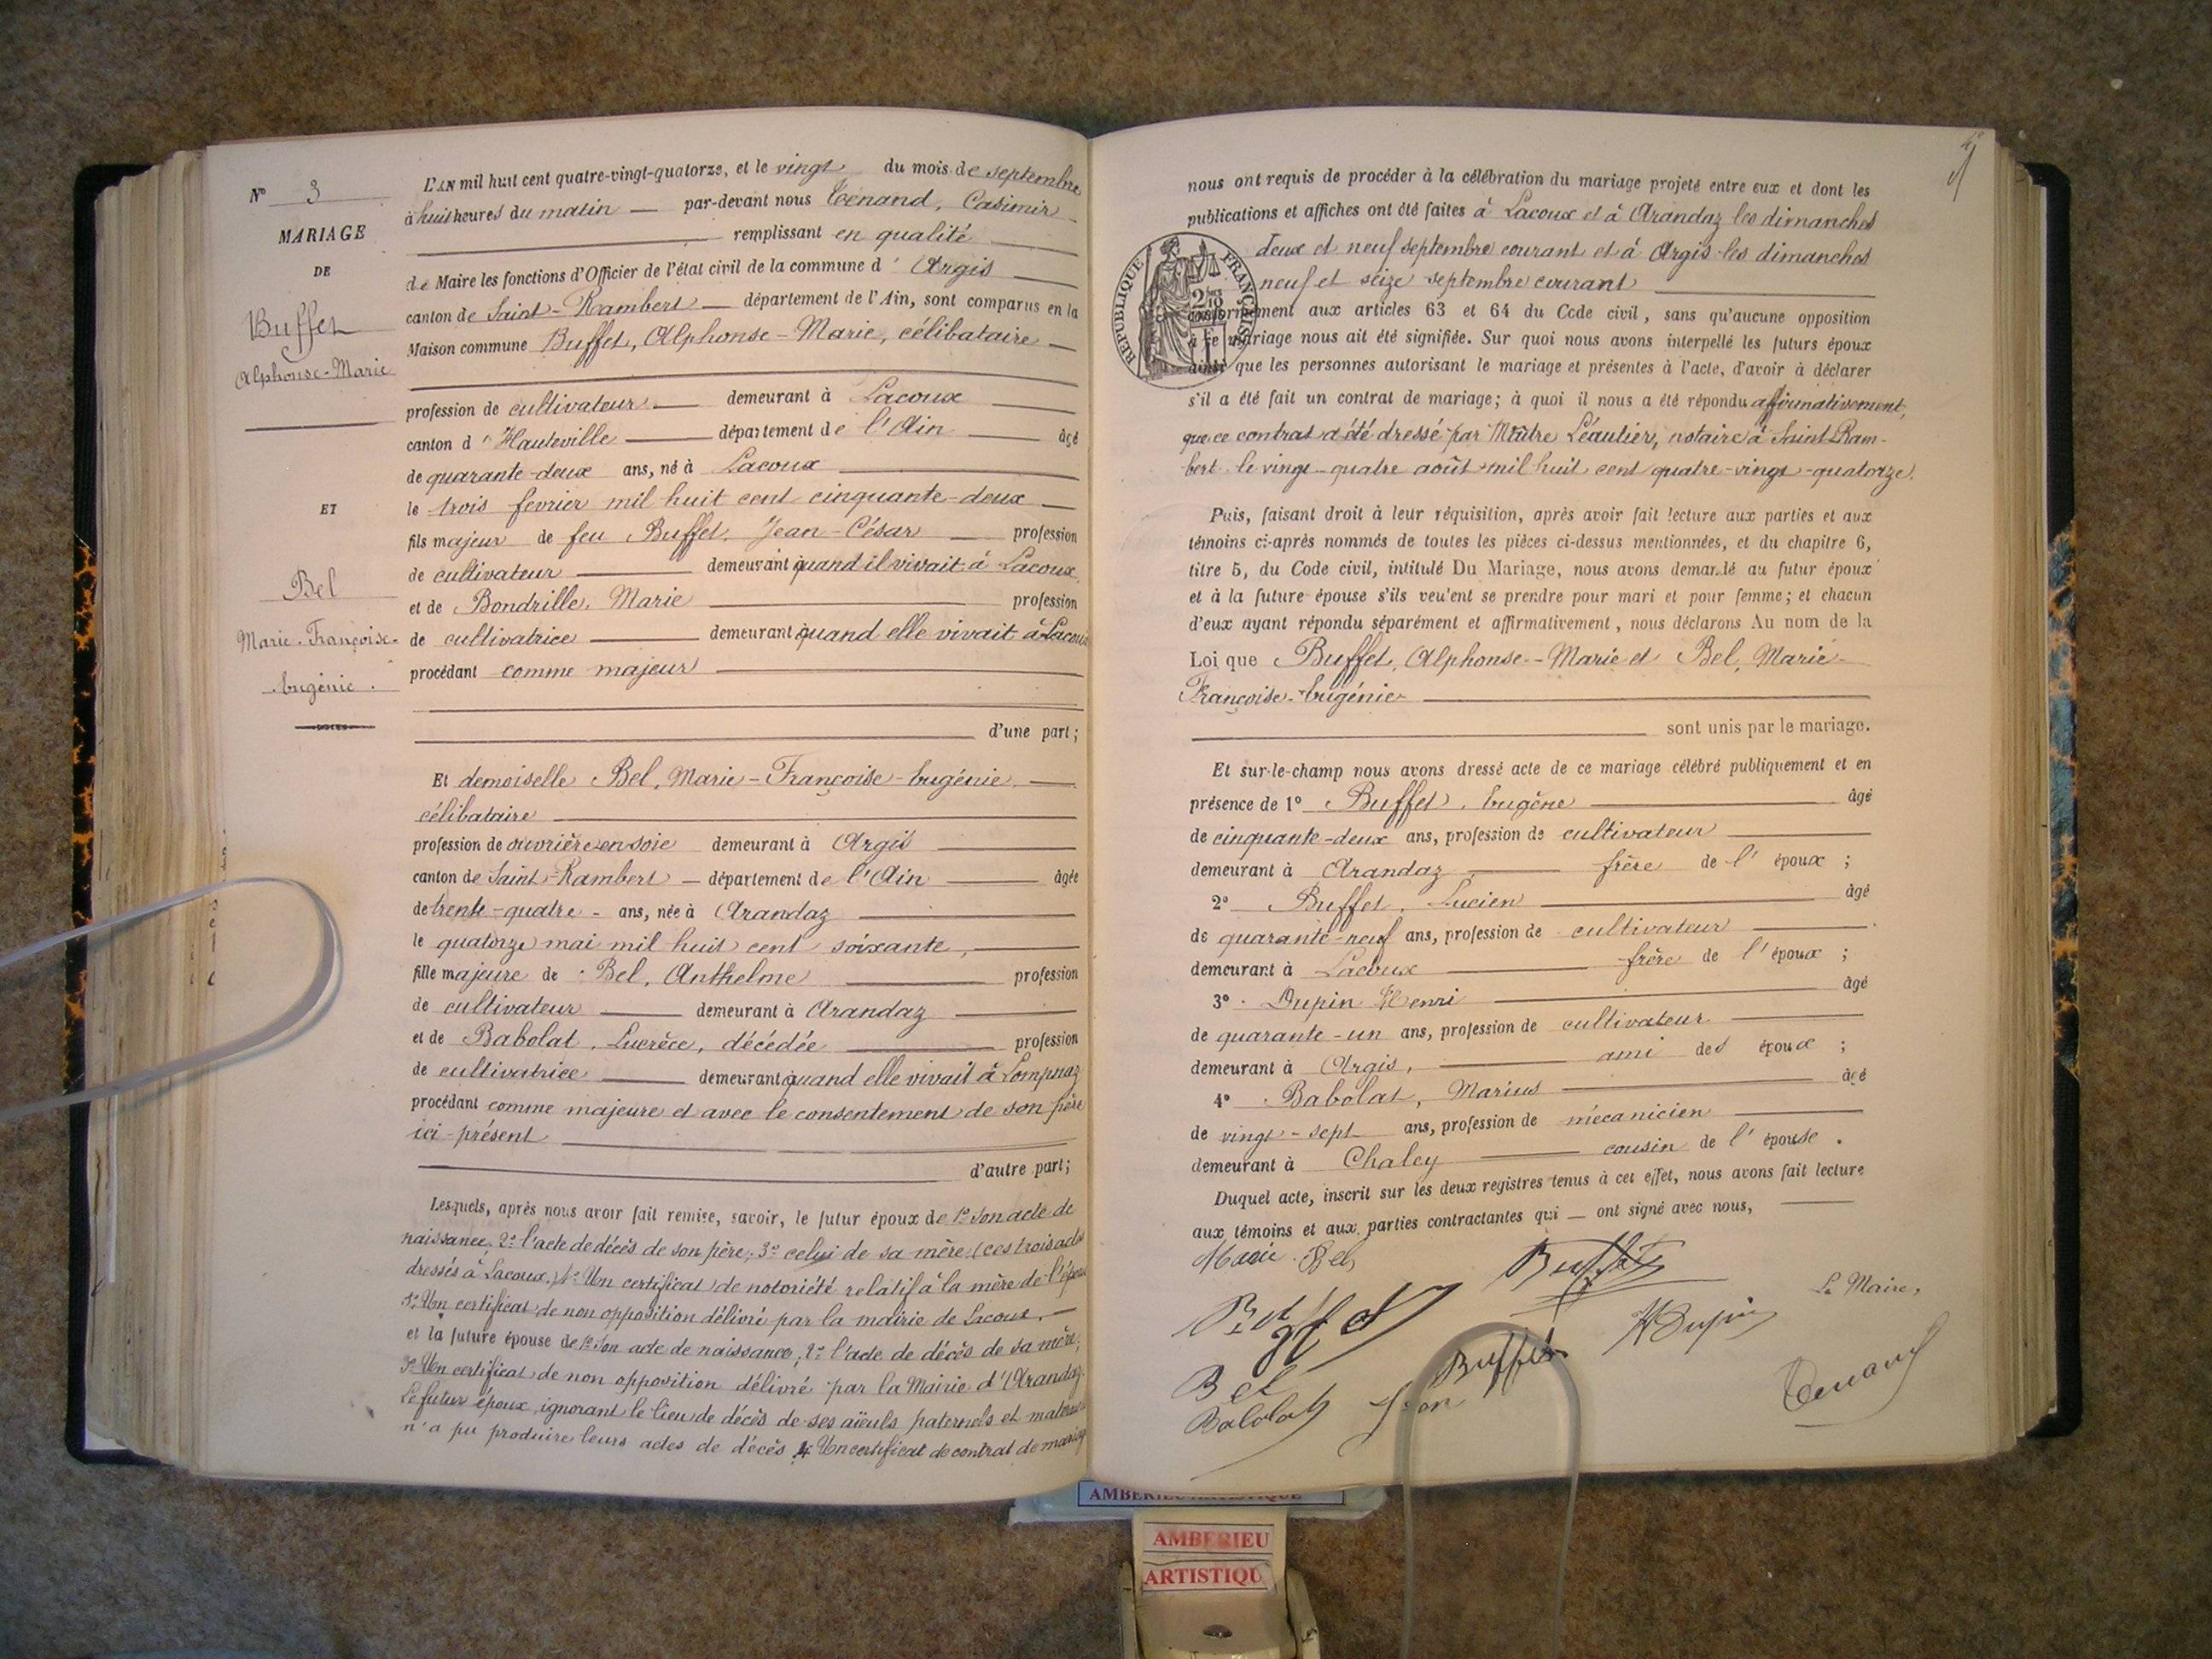 N° 3
MARIAGE
DE
Buffet
Alphonse-Marie
ET
Bel
Marie-Françoise-
Eugénie.
L'AN mil huit cent quatre-vingt-quatorze, et le vingt du mois de septembre
à huit heures du matin par-devant nous Tenand, Casimir
remplissant en qualité
de Maire les fonctions d'Officier de l'état civil de la commune d' Argis
canton de Saint-Rambert département de l'Ain, sont comparus en la
Maison commune Buffet, Alphonse-Marie, célibataire
profession de cultivateur demeurant à Lacoux
canton d' Hauteville département de l'Ain âgé
de quarante-deux ans, né à Lacoux
le trois fevrier mil huit cent cinquante-deux
fils majeur de feu Buffet, Jean-César profession
de cultivateur demeurant quand il vivait à Lacoux,
et de Bondrille, Marie profession
de cultivatrice demeurant quand elle vivait à Lacoux
procédant comme majeur
d'une part;
Et demoiselle Bel, Marie-Françoise-Eugénie,
célibataire
profession de ouvrière en soie demeurant à Argis
canton de Saint-Rambert département de l'Ain âgée
de trente-quatre ans, née à Arandaz
le quatorze mai mil huit cent soixante,
fille majeure de Bel, Anthelme profession
de cultivateur demeurant à Arandaz
et de Babolat, Lucrèce, décédée profession
de cultivatrice demeurant quand elle vivait à Lompnaz
procédant comme majeure et avec le consentement de son père
ici présent
d'autre part;
Lesquels, après nous avoir fait remise, savoir, le futur époux de 1° Son acte de
naissance. 2° l'acte de décès de son père; 3° celui de sa mère (ces trois actes
dressés à Lacoux.) 4° Un certificat de notoriété relatif à la mère de l'époux
5° Un certificat de non opposition délivré par la mairie de Lacoux.
et la future épouse de 1° Son acte de naissance; 2° l'acte de décès de sa mère;
3° Un certificat de non opposition délivré par la Mairie d'Arandaz.
Le futur époux ignorant le lieu de décès de ses aïeuls paternels et maternels
n'a pu produire leurs actes de décès 4 Un certificat de contrat de mariage
nous ont requis de procéder à la célébration du mariage projeté entre eux et dont les
publications et affiches ont été faites à Lacoux et à Arandaz les dimanches
deux et neuf septembre courant et à Argis les dimanches
neuf et seize septembre courant
RÉPUBLIQUE FRANÇAISE
conformément aux articles 63 et 64 du Code civil, sans qu'aucune opposition
à ce mariage nous ait été signifiée. Sur quoi nous avons interpellé les futurs époux
ainsi que les personnes autorisant le mariage et présentes à l'acte, d'avoir à déclarer
s'il a été fait un contrat de mariage; à quoi il nous a été répondu affirmativement,
que ce contrat a été dressé par Maître Léautier, notaire à Saint-Ram-
bert le vingt-quatre août mil huit cent quatre-vingt-quatorze.
Puis, faisant droit à leur réquisition, après avoir fait lecture aux parties et aux
témoins ci-après nommés de toutes les pièces ci-dessus mentionnées, et du chapitre 6,
titre 5, du Code civil, intitulé Du Mariage, nous avons demandé au futur époux
et à la future épouse s'ils veulent se prendre pour mari et pour femme; et chacun
d'eux ayant répondu séparément et affirmativement, nous déclarons Au nom de la
Loi que Buffet, Alphonse-Marie et Bel, Marie-
Françoise-Eugénie
sont unis par le mariage.
Et sur-le-champ nous avons dressé acte de ce mariage célébré publiquement et en
présence de 1° Buffet, Eugène âgé
de cinquante-deux ans, profession de cultivateur
demeurant à Arandaz frère de l'époux;
2° Buffet, Lucien âgé
de quarante-neuf ans, profession de cultivateur
demeurant à Lacoux frère de l'époux;
3° Dupin Henri âgé
de quarante-un ans, profession de cultivateur
demeurant à Argis, ami des époux;
4° Babolat, Marius âgé
de vingt-sept ans, profession de mécanicien
demeurant à Chaley cousin de l'épouse.
Duquel acte, inscrit sur les deux registres tenus à cet effet, nous avons fait lecture
aux témoins et aux parties contractantes qui ont signé avec nous,
Marie Bel
Buffet
Le Maire,
H Dupin
Buffet
Bel
Babolat
Tenand
AMBERIEU ARTISTIQUE
AMBERIEU
ARTISTIQU